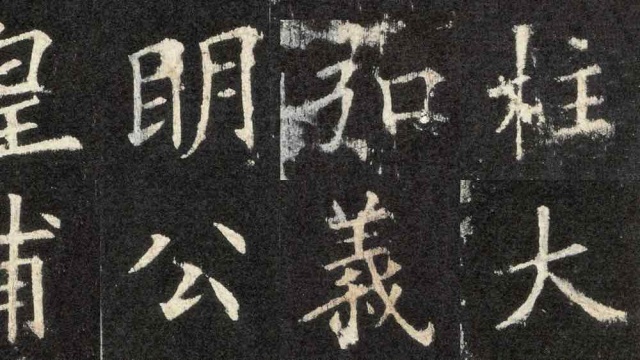 柱大
弘義
明公
皇甫